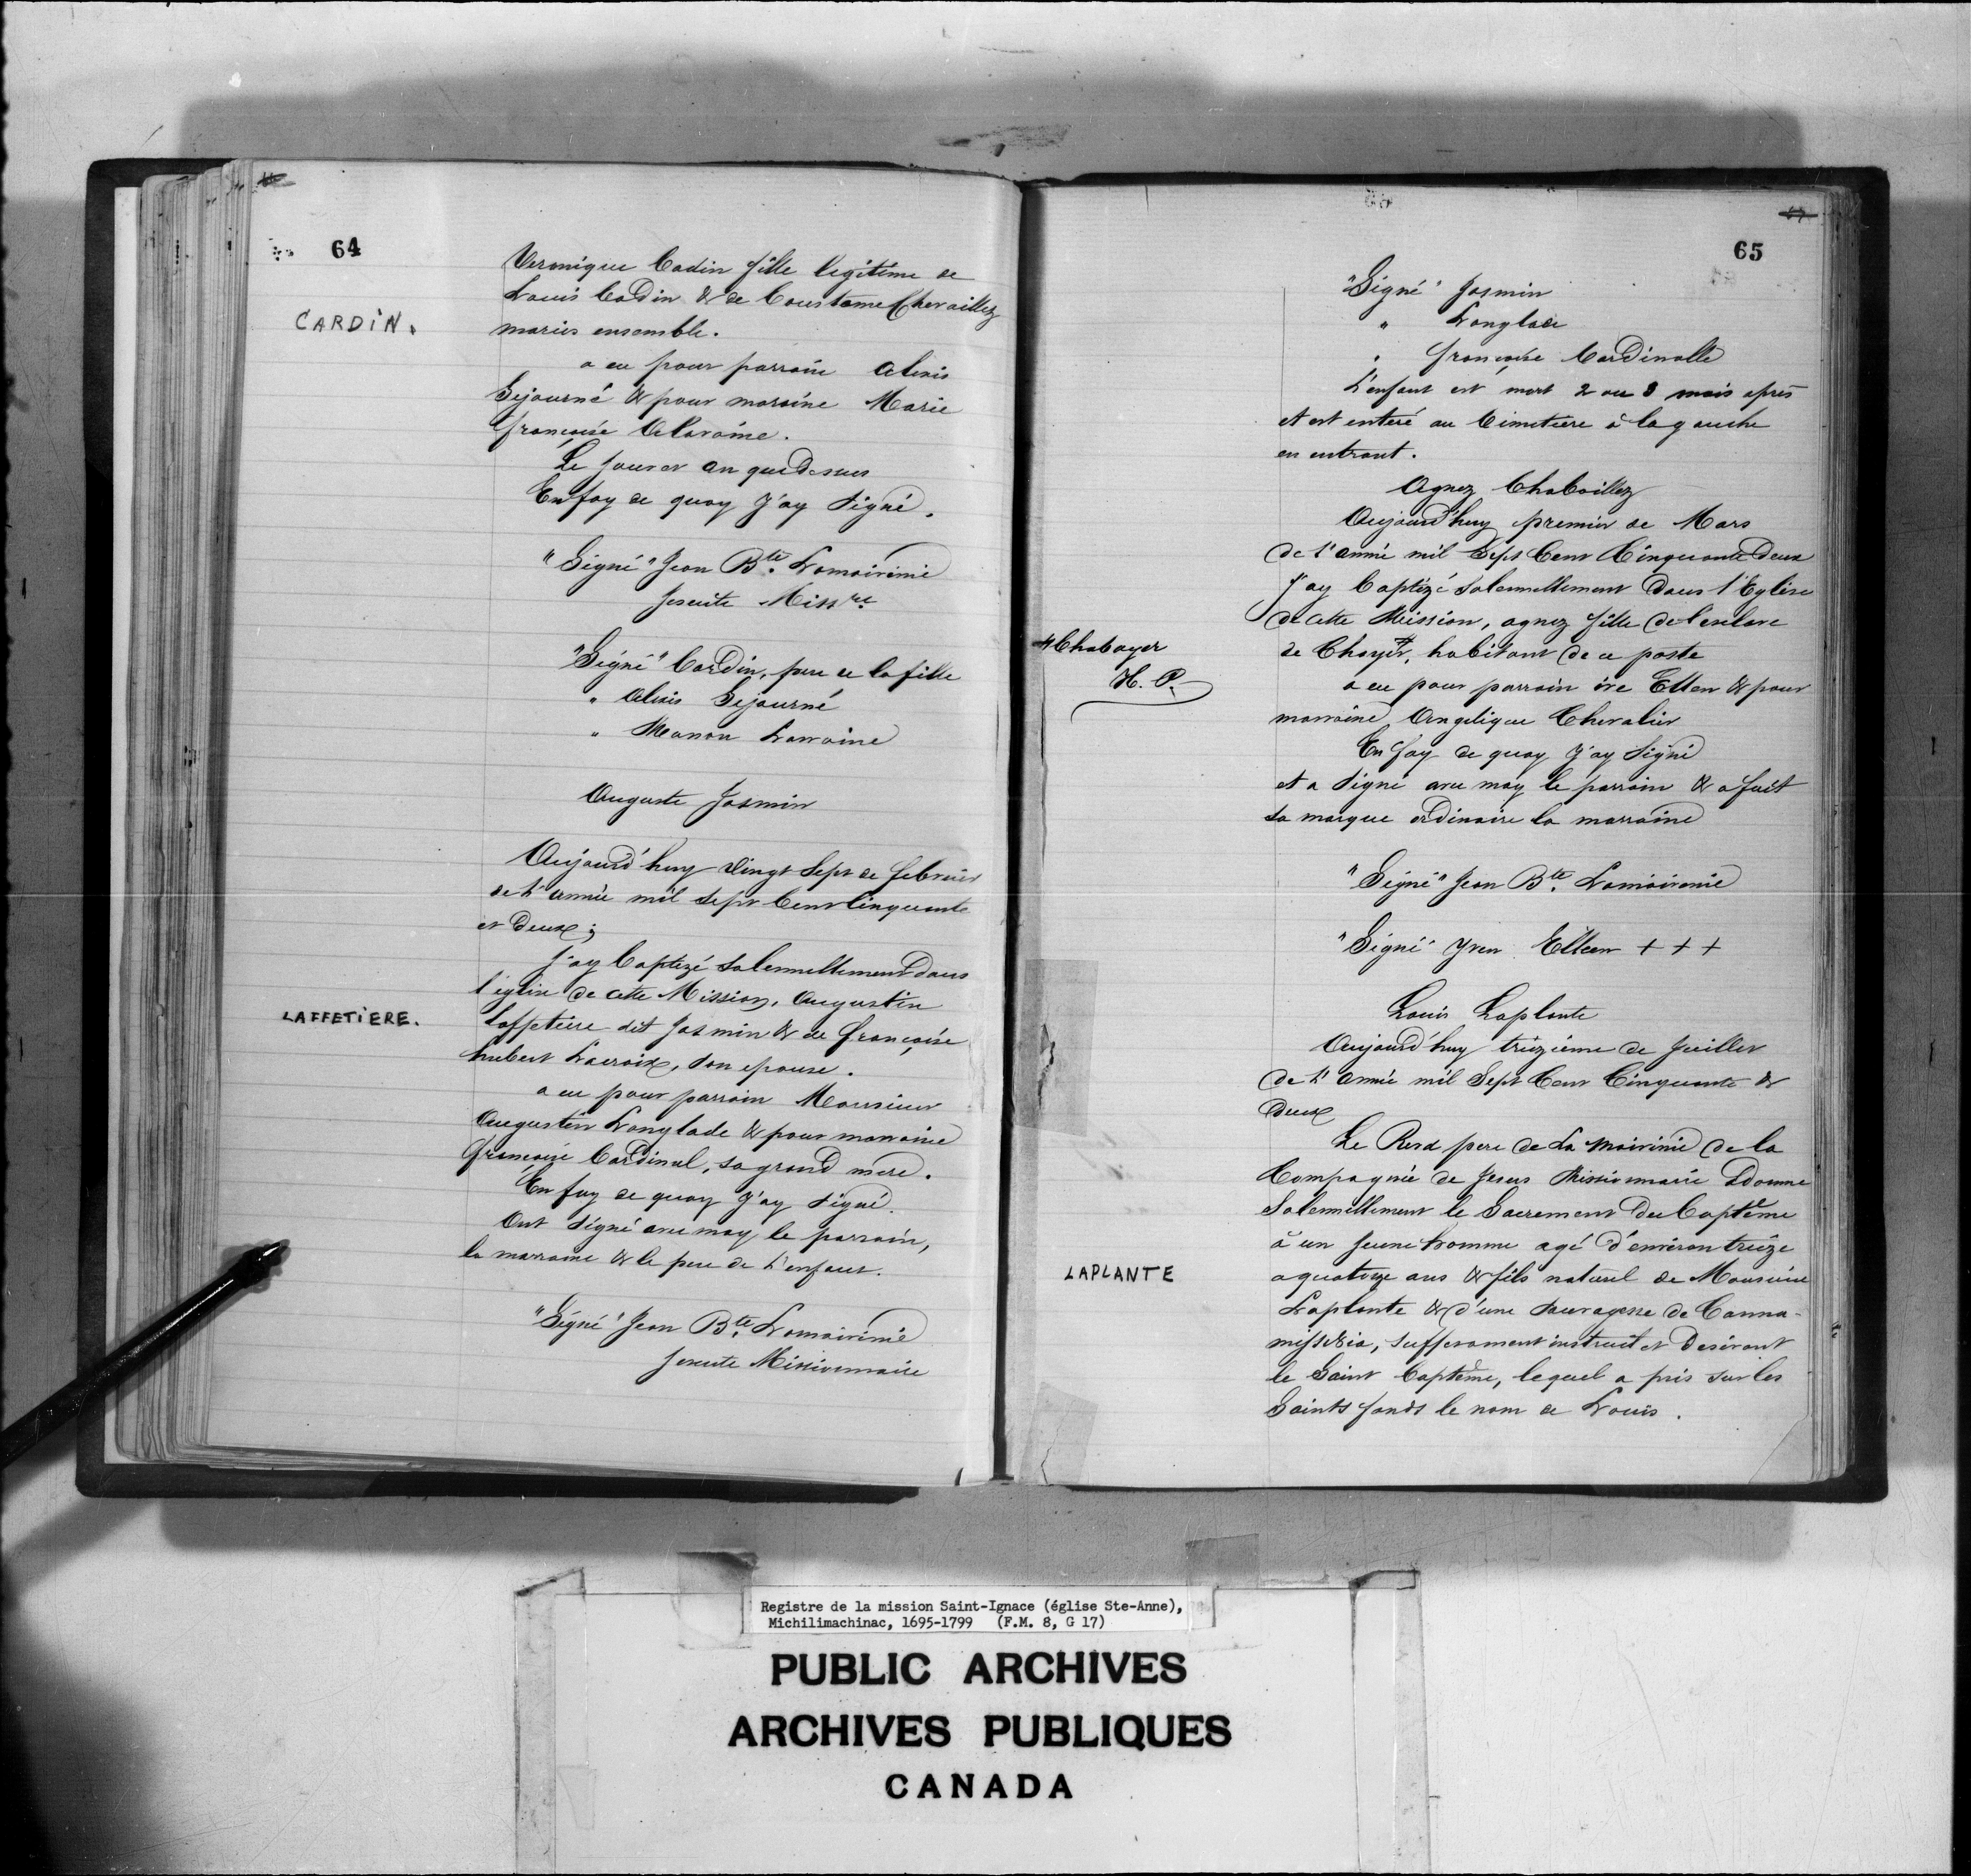 64
CARDIN.
Veronique Cadin fille legitime de
Louis Cadin & de Coustame Chevaillez
mariés ensemble.
a eu pour parrain Alexis
Sejourné & pour maraine Marie
françoise Alaraine.
Le jour et an que dessus
En foy de quoy J'ay signé.
"Signé" Jean Bte. Lamoirinie
Jesuite Missre
"Signé" Cardin, pere de la fille
" Alexis Sejourné
" Manon Lorraine
Auguste Jasmin
Aujourd'huy vingt Sept de febrier
de l'année mil sept Cent Cinquante
et deux;
J'ay baptizé solennellement dans
l'eglise de cette Mission, Augustin
LAFFETIERE.
Laffetiere dit Jasmin & de françoise
hubert Lacroix, son epouse.
a eu pour parrain Monsieur
Augustin Langlade & pour marraine
françoise Cardinal, sa grand mere.
En foy de quoy J'ay signé.
Ont signé avec moy le parrain,
la marraine & le pere de l'enfant.
"Signé" Jean Bte. Lamoirinie
Jesuite Missionnaire
65
"Signé" Jasmin
" Langlade
" françoise Cardinalle
L'enfant est mort 2 ou 3 mois après
et est enteré au Cimetiere à la gauche
en entrant.
Agnez Chaboillez
Aujourd'huy premier de Mars
de l'année mil Sept Cent Cinquante Deux
J'ay baptizé solennellement dans l'Eglise
de cette Mission, agnez fille de l'esclave
# Chaboyer
H. P.
de Choyer #, habitant de ce poste
a eu pour parrain ive Ellen & pour
marraine, Angelique Chevalier
En foy de quoy J'ay signé
et a signé avec moy le parrain & a fait
sa marque ordinaire la marraine
"Signé" Jean Bte. Lamoirinie
"Signé" Yven Elleen + + +
Louis Laplante
Aujourd'huy treizieme de Juillet
de l'année mil Sept Cent Cinquante &
deux
Le Revd pere de La moirinie de la
Compagnie de Jesus Missionnaire a donné
Solennellement le Sacrement du baptême
à un jeune homme agé d'environ treize
LAPLANTE
a quatorze ans & fils naturel de Monsieur
Laplante & d'une sauvagesse de Canna-
, suffisament instruit et desirant
le Saint baptême, lequel a pris sur les
Saints fonds le nom de Louis.
Registre de la mission Saint-Ignace (église Ste-Anne),
Michilimachinac, 1695-1799 (F.M. 8, G 17)
PUBLIC ARCHIVES
ARCHIVES PUBLIQUES
CANADA